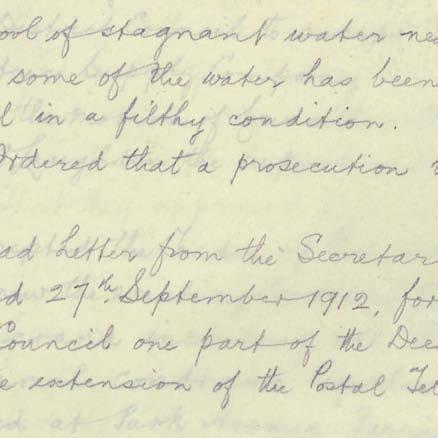 ool of stagnant water ne
some of the water has been
l in a filthy condition.
Ordered that a prosecution
ad Letter from the Secretar
d 27th. September 1912, for
Council one part of the Dee
e extension of the Postal Tel
d at Park